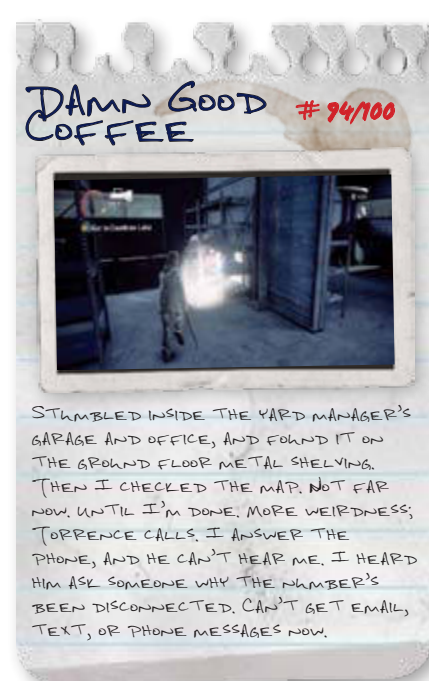 DAMN GOOD
COFFEE
# 94/100
STUMBLED INSIDE THE YARD MANAGER'S
GARAGE AND OFFICE, AND FOUND IT ON
THE GROUND FLOOR METAL SHELVING.
THEN I CHECKED THE MAP. NOT FAR
NOW. UNTIL I'M DONE. MORE WEIRDNESS;
TORRENCE CALLS. I ANSWER THE
PHONE, AND HE CAN'T HEAR ME. I HEARD
HIM ASK SOMEONE WHY THE NUMBER'S
BEEN DISCONNECTED. CAN'T GET EMAIL,
TEXT, OR PHONE MESSAGES NOW.